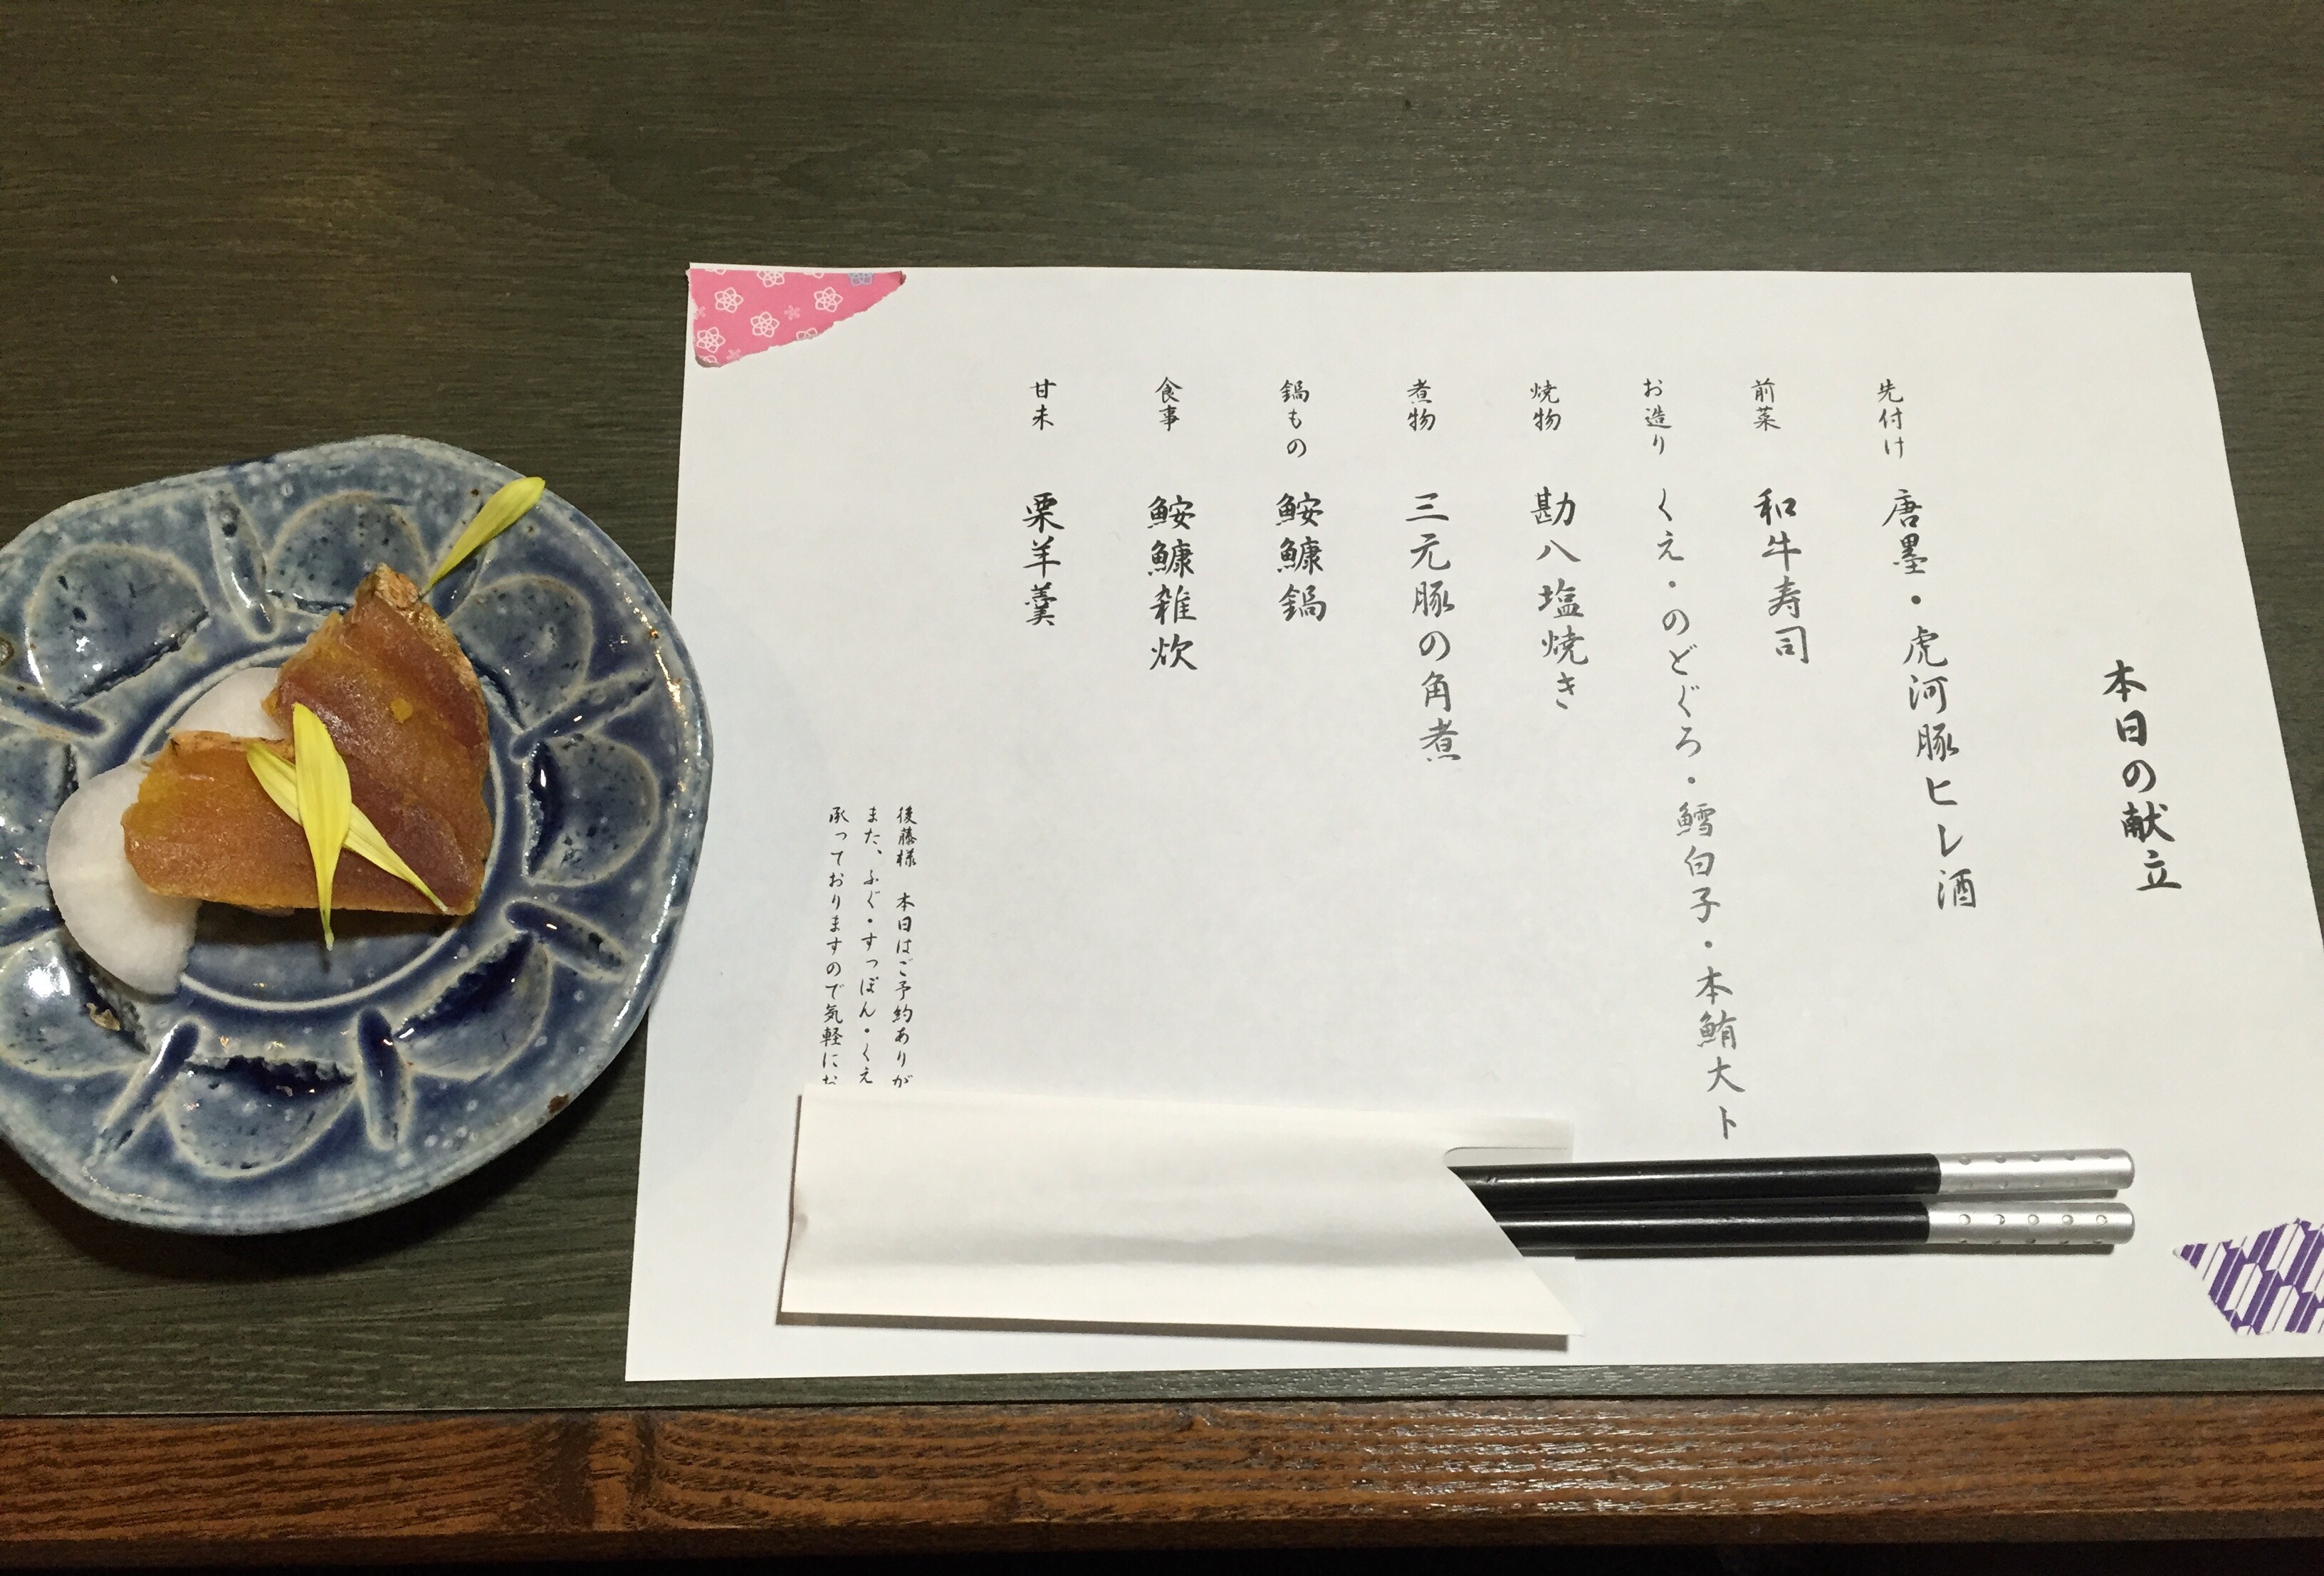 本日の献立
先付け 唐墨・虎河豚ヒレ酒
前菜 和牛寿司
お造り くえ・のどぐろ・鱈白子・本鮪大ト
焼物 勘八塩焼き
煮物 三元豚の角煮
鍋もの 鮟鱇鍋
食事 鮟鱇雑炊
甘未 栗羊羹
後藤様 本日はご予約ありが
また、ふぐ・すっぽん・くえ
承っておりますので気軽にお